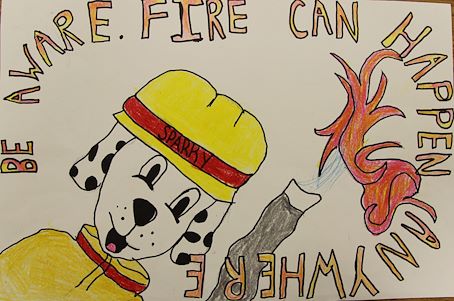 BE AWARE. FIRE CAN HAPPEN ANYWHERE
SPARKY